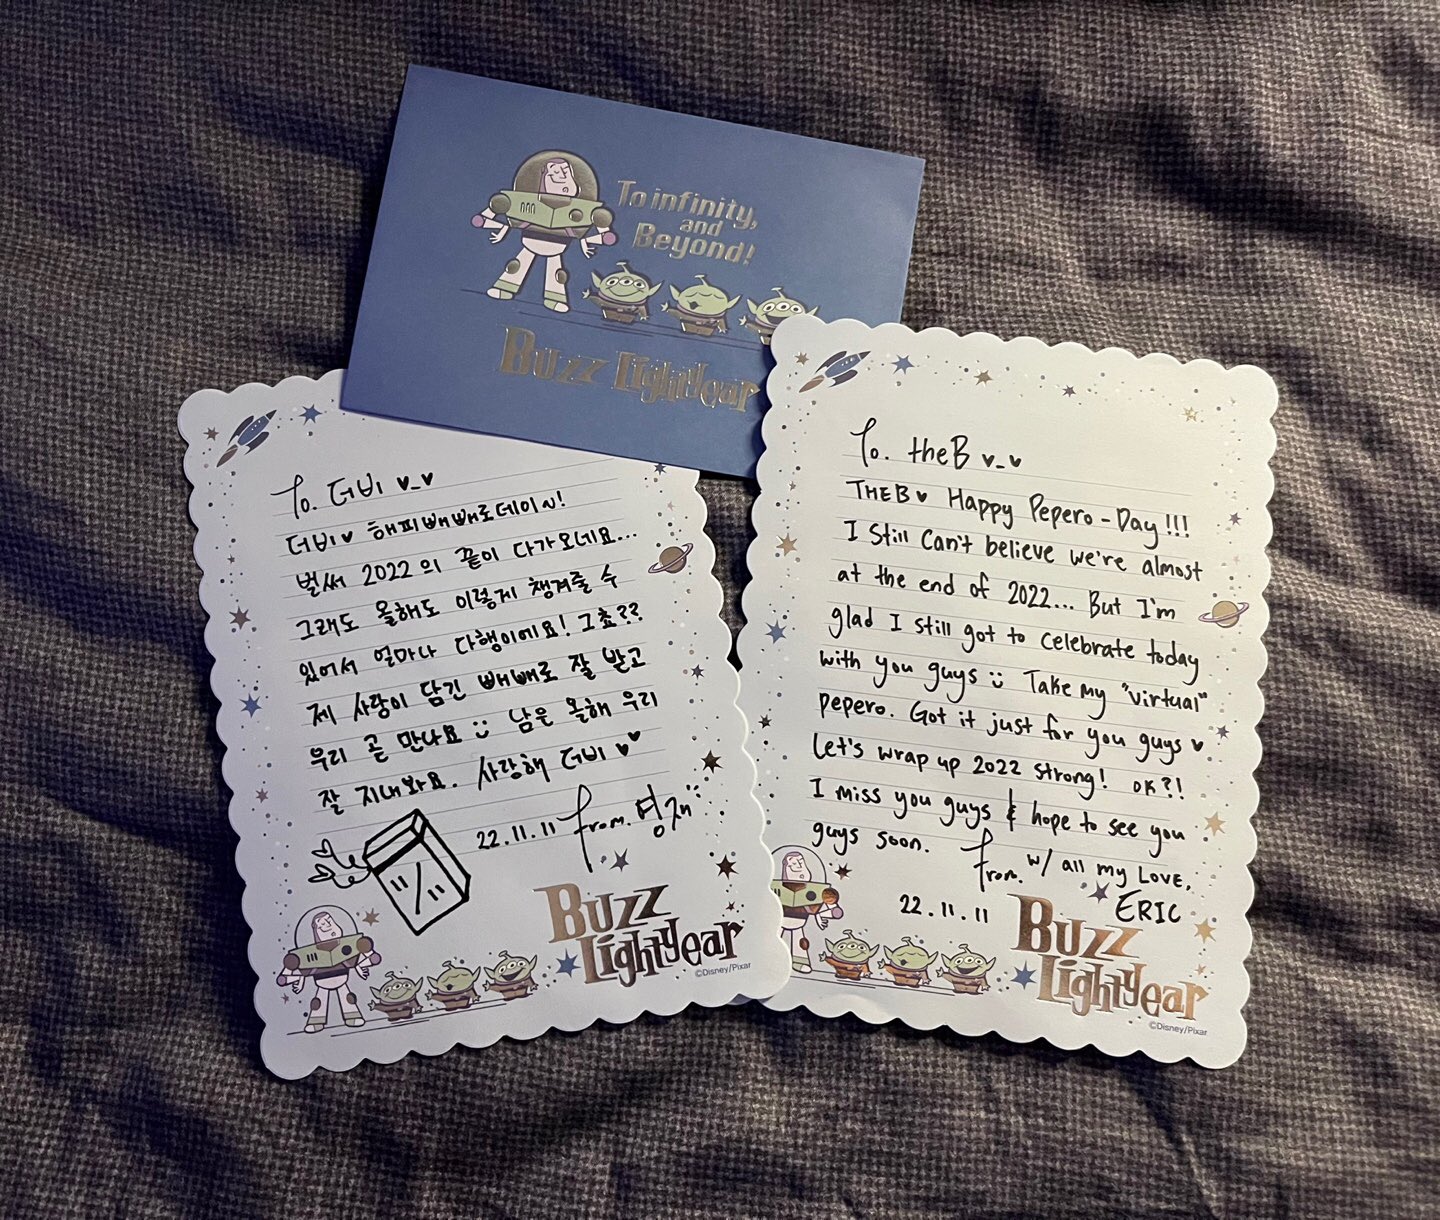 To infinity,
and
Beyond!
Buzz Lightyear
To. 더비 ♥_♥
더비♥ 해피빼빼로데이~!
벌써 2022의 끝이 다가오네요...
그래도 올해도 이렇게 챙겨줄 수
있어서 얼마나 다행이에요! 그쵸??
제 사랑이 담긴 빼빼로 잘 받고
우리 곧 만나요 :) 남은 올해 우리
잘 지내봐요. 사랑해 더비 ♥♥
22.11.11 From. 영재
Buzz
Lightyear
©Disney/Pixar
To. theB ♥_♥
THEB♥ Happy Pepero-Day!!!
I still can't believe we're almost
at the end of 2022... But I'm
glad I still got to celebrate today
with you guys :) Take my "virtual"
pepero. Got it just for you guys ♥
Let's wrap up 2022 strong! OK?!
I miss you guys & hope to see you
guys soon. From. w/ all my Love,
22.11.11 ERIC
Buzz
Lightyear
©Disney/Pixar